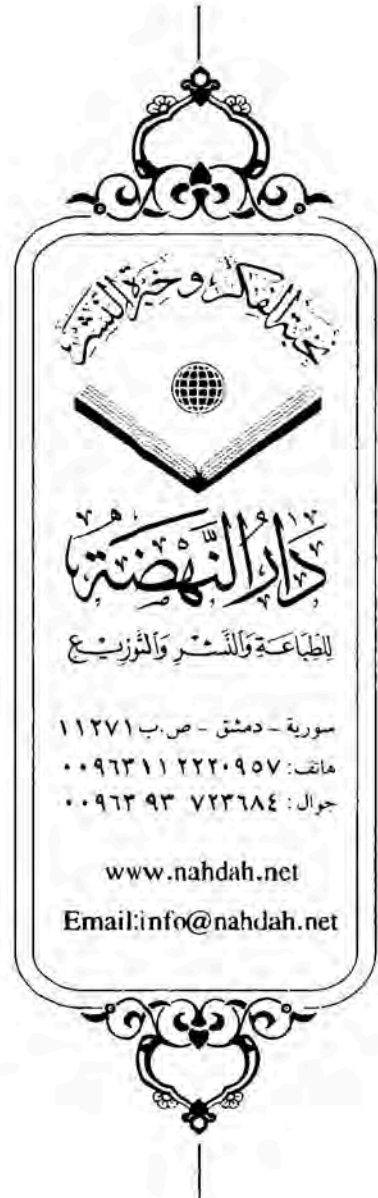 نخبة الفكر وخبرة النشر
دَارُ النَّهْضَة
لِلطِّبَاعَةِ وَالنَّشْرِ وَالتَّوْزِيْع
سورية - دمشق - ص.ب ١١٢٧١
هاتف: ٢٢٢٠٩٥٧ ١١ ٠٠٩٦٣
جوال: ٧٢٣٦٨٤ ٩٣ ٠٠٩٦٣
www.nahdah.net
Email:info@nahdah.net